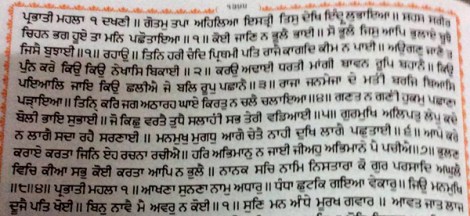 ੧੩੪੪
ਪ੍ਰਭਾਤੀ ਮਹਲਾ ੧ ਦਖਣੀ ॥ ਗੋਤਮੁ ਤਪਾ ਅਹਿਲਿਆ ਇਸਤ੍ਰੀ ਤਿਸੁ ਦੇਖਿ ਇੰਦ੍ਰੁ ਲੁਭਾਇਆ ॥ ਸਹਸ ਸਰੀਰ
ਚਿਹਨ ਭਗ ਹੂਏ ਤਾ ਮਨਿ ਪਛੋਤਾਇਆ ॥੧॥ ਕੋਈ ਜਾਣਿ ਨ ਭੂਲੈ ਭਾਈ ॥ ਸੋ ਭੂਲੈ ਜਿਸੁ ਆਪਿ ਭੁਲਾਏ ਬੂਝੈ
ਜਿਸੈ ਬੁਝਾਈ ॥੧॥ ਰਹਾਉ ॥ ਤਿਨਿ ਹਰੀ ਚੰਦਿ ਪ੍ਰਿਥਮੀ ਪਤਿ ਰਾਜੈ ਕਾਗਦਿ ਕੀਮ ਨ ਪਾਈ ॥ ਅਉਗਣੁ ਜਾਣੈ ਤ
ਪੁੰਨ ਕਰੇ ਕਿਉ ਕਿਉ ਨੇਖਾਸਿ ਬਿਕਾਈ ॥੨॥ ਕਰਉ ਅਢਾਈ ਧਰਤੀ ਮਾਂਗੀ ਬਾਵਨ ਰੂਪਿ ਬਹਾਨੈ ॥ ਕਿਉ
ਪਇਆਲਿ ਜਾਇ ਕਿਉ ਛਲੀਐ ਜੇ ਬਲਿ ਰੂਪੁ ਪਛਾਨੈ ॥੩॥ ਰਾਜਾ ਜਨਮੇਜਾ ਦੇ ਮਤੀ ਬਰਜਿ ਬਿਆਸਿ
ਪੜ੍ਹਾਇਆ ॥ ਤਿਨ੍ਹਿ ਕਰਿ ਜਗ ਅਠਾਰਹ ਘਾਏ ਕਿਰਤੁ ਨ ਚਲੈ ਚਲਾਇਆ ॥੪॥ ਗਣਤ ਨ ਗਣੀ ਹੁਕਮੁ ਪਛਾਣਾ
ਬੋਲੀ ਭਾਇ ਸੁਭਾਈ ॥ ਜੋ ਕਿਛੁ ਵਰਤੈ ਤੁਧੈ ਸਲਾਹੀ ਸਭ ਤੇਰੀ ਵਡਿਆਈ ॥੫॥ ਗੁਰਮੁਖਿ ਅਲਿਪਤੁ ਲੇਪੁ ਕਦੇ
ਨ ਲਾਗੈ ਸਦਾ ਰਹੈ ਸਰਣਾਈ ॥ ਮਨਮੁਖੁ ਮੁਗਧੁ ਆਗੈ ਚੇਤੈ ਨਾਹੀ ਦੁਖਿ ਲਾਗੈ ਪਛੁਤਾਈ ॥੬॥ ਆਪੇ ਕਰੇ
ਕਰਾਏ ਕਰਤਾ ਜਿਨਿ ਏਹ ਰਚਨਾ ਰਚੀਐ ॥ ਹਰਿ ਅਭਿਮਾਨੁ ਨ ਜਾਈ ਜੀਅਹੁ ਅਭਿਮਾਨੇ ਪੈ ਪਚੀਐ ॥੭॥ ਭੁਲਣ
ਵਿਚਿ ਕੀਆ ਸਭੁ ਕੋਈ ਕਰਤਾ ਆਪਿ ਨ ਭੁਲੈ ॥ ਨਾਨਕ ਸਚਿ ਨਾਮਿ ਨਿਸਤਾਰਾ ਕੋ ਗੁਰ ਪਰਸਾਦਿ ਅਘੁਲੈ
॥੮॥੪॥ ਪ੍ਰਭਾਤੀ ਮਹਲਾ ੧ ॥ ਆਖਣਾ ਸੁਨਣਾ ਨਾਮੁ ਅਧਾਰੁ ॥ ਧੰਧਾ ਛੁਟਕਿ ਗਇਆ ਵੇਕਾਰੁ ॥ ਜਿਉ ਮਨਮੁਖਿ
ਦੂਜੈ ਪਤਿ ਖੋਈ ॥ ਬਿਨੁ ਨਾਵੈ ਮੈ ਅਵਰੁ ਨ ਕੋਈ ॥੧॥ ਸੁਣਿ ਮਨ ਅੰਧੇ ਮੂਰਖ ਗਵਾਰ ॥ ਆਵਤ ਜਾਤ ਲਾਜ